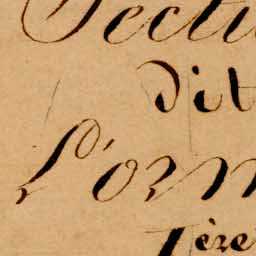 Secti
dit
L'orm
1ère